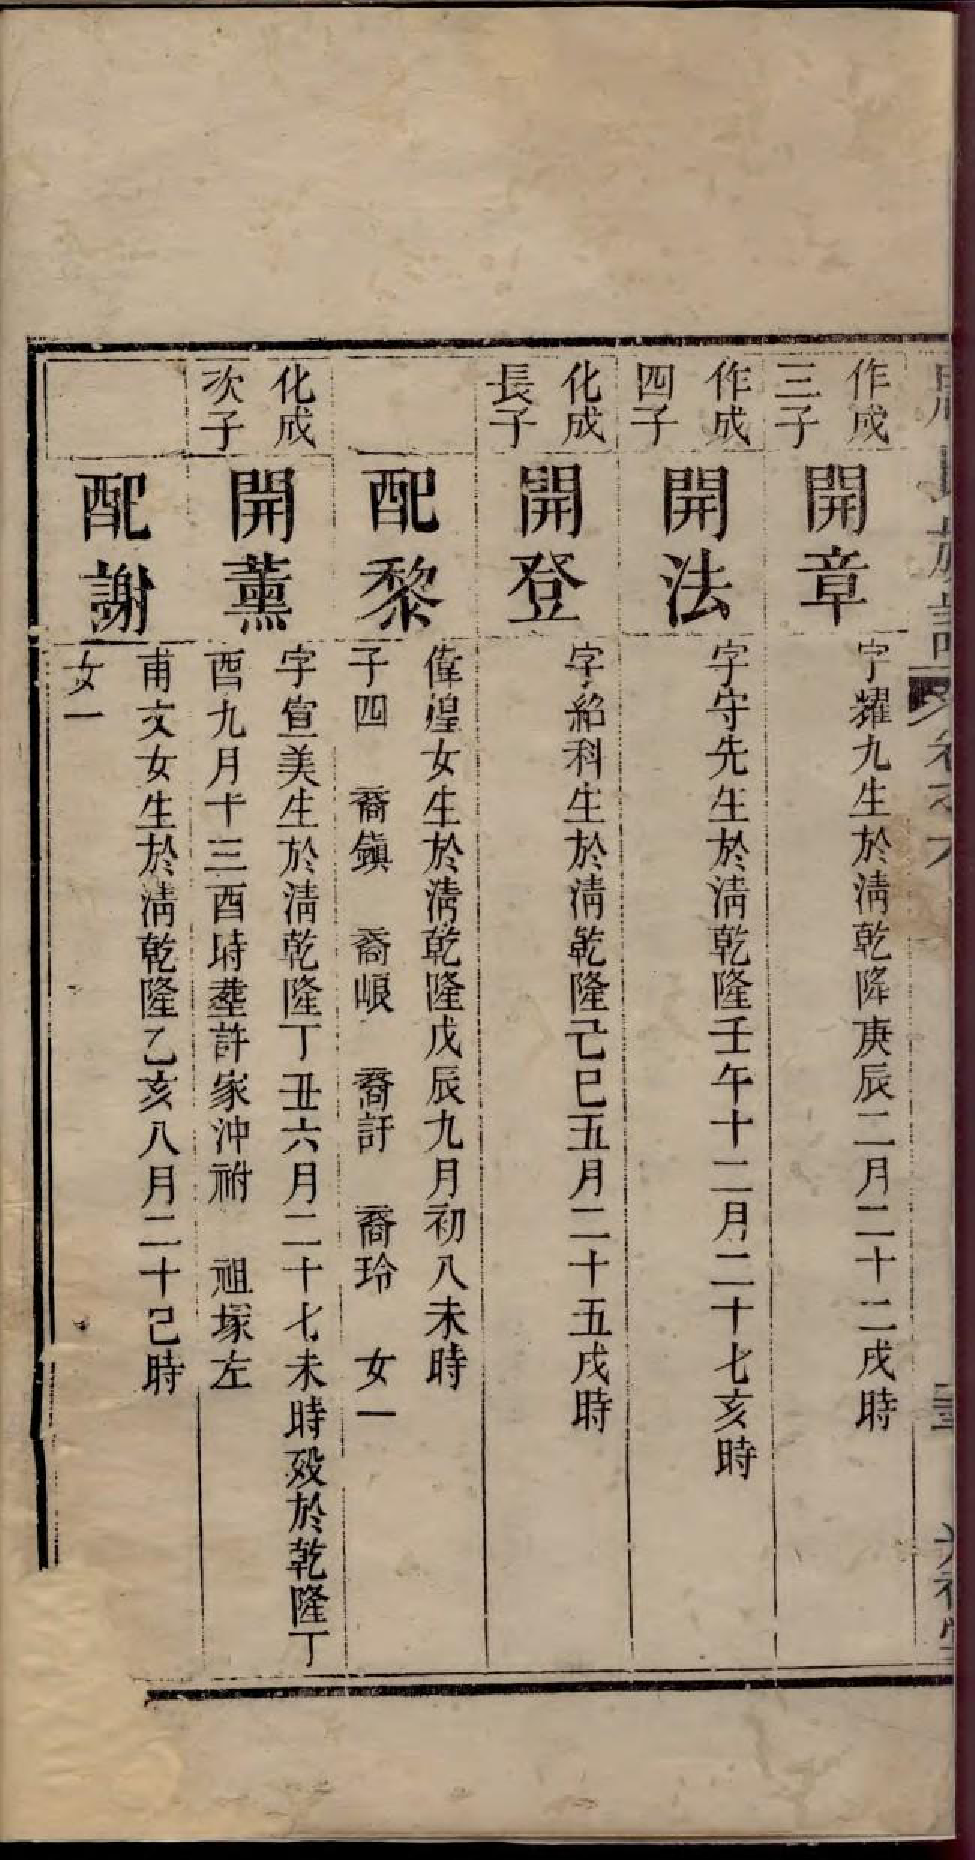 族譜
卷之六
作成
三子
開章
字耀九生於清乾隆庚辰二月二十二戌時
作成
四子
開法
字守先生於清乾隆壬午十二月二十七亥時
化成
長子
開登
字紹科生於清乾隆己巳五月二十五戌時
配黎
偉煌女生於清乾隆戊辰九月初八未時
子四　裔鎮　裔峎　裔訏　裔玲　女一
化成
次子
開薰
字宣美生於清乾隆丁丑六月二十七未時歿於乾隆丁
酉九月十三酉時塟許家沖祔　祖塚左
配謝
甫文女生於清乾隆乙亥八月二十巳時
女一